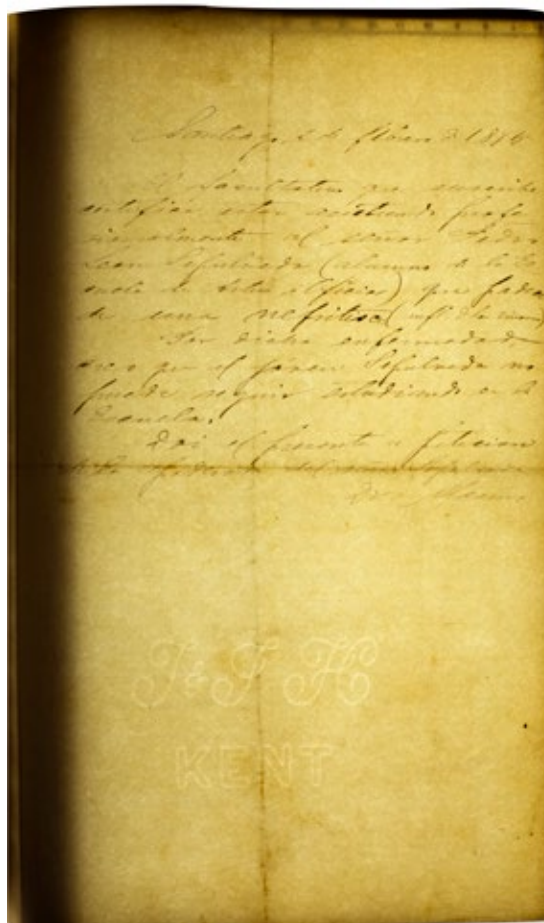 Santiago, 2 de de 1886
El facultativo que suscribe
certifica estar asistiendo profe
sionalmente al señor Pedro
Leon Sepulveda (alumno de la Es
cuela de Artes i Oficios) que padece
de una nefritis (infl. de riñon)
Por dicha enfermedad
creo que el joven Sepulveda no
puede seguir estudiando en la
Escuela.
Doi el presente a peticion
del Sepulveda
J & J H
KENT